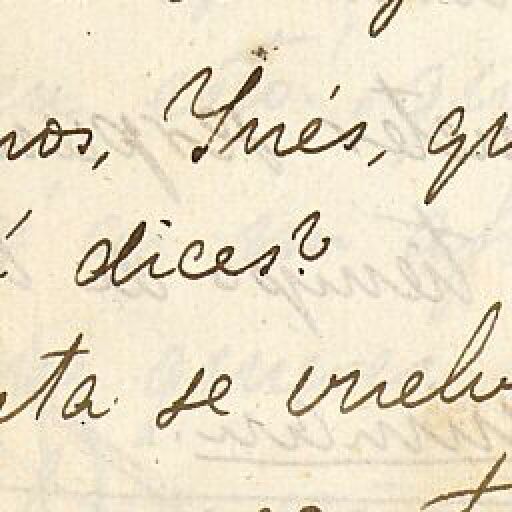 nos, Inés, qu
é dices?
ta se vuelv